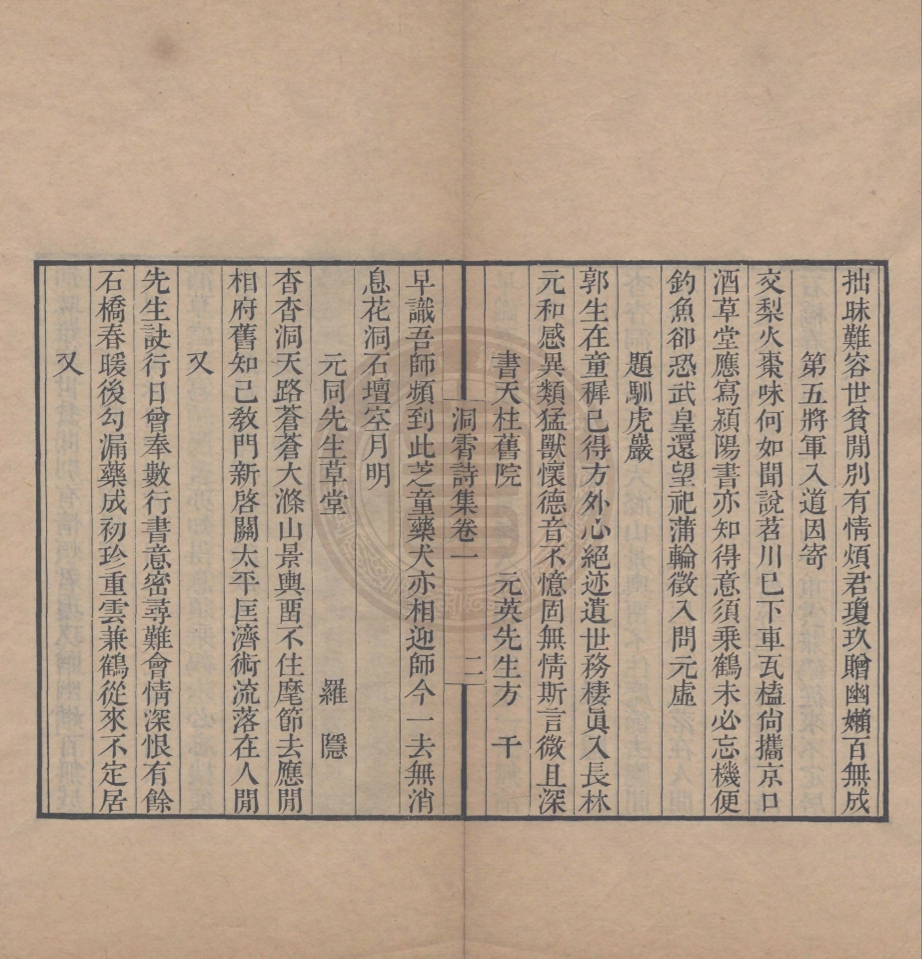 拙昧難容世貧閒別有情煩君瓊玖贈幽嬾百無成
第五將軍入道因寄
交梨火棗味何如聞說苕川已下車瓦榼尙攜京口
酒草堂應寫潁陽書亦知得意須乘鶴未必忘機便
釣魚卻恐武皇還望祀蒲輪徵入問元虛
題馴虎巖
郭生在童穉已得方外心絕迹遺世務棲眞入長林
元和感異類猛獸懷德音不憶固無情斯言微且深
書天柱舊院　元英先生方　干
洞霄詩集卷一　二
早識吾師頻到此芝童藥犬亦相迎師今一去無消
息花洞石壇空月明
元同先生草堂　羅　隱
杳杳洞天路蒼蒼大滌山景輿畱不住麾節去應閒
相府舊知己敎門新啓關太平匡濟術流落在人閒
又
先生訣行日曾奉數行書意密尋難會情深恨有餘
石橋春暖後勾漏藥成初珍重雲兼鶴從來不定居
又